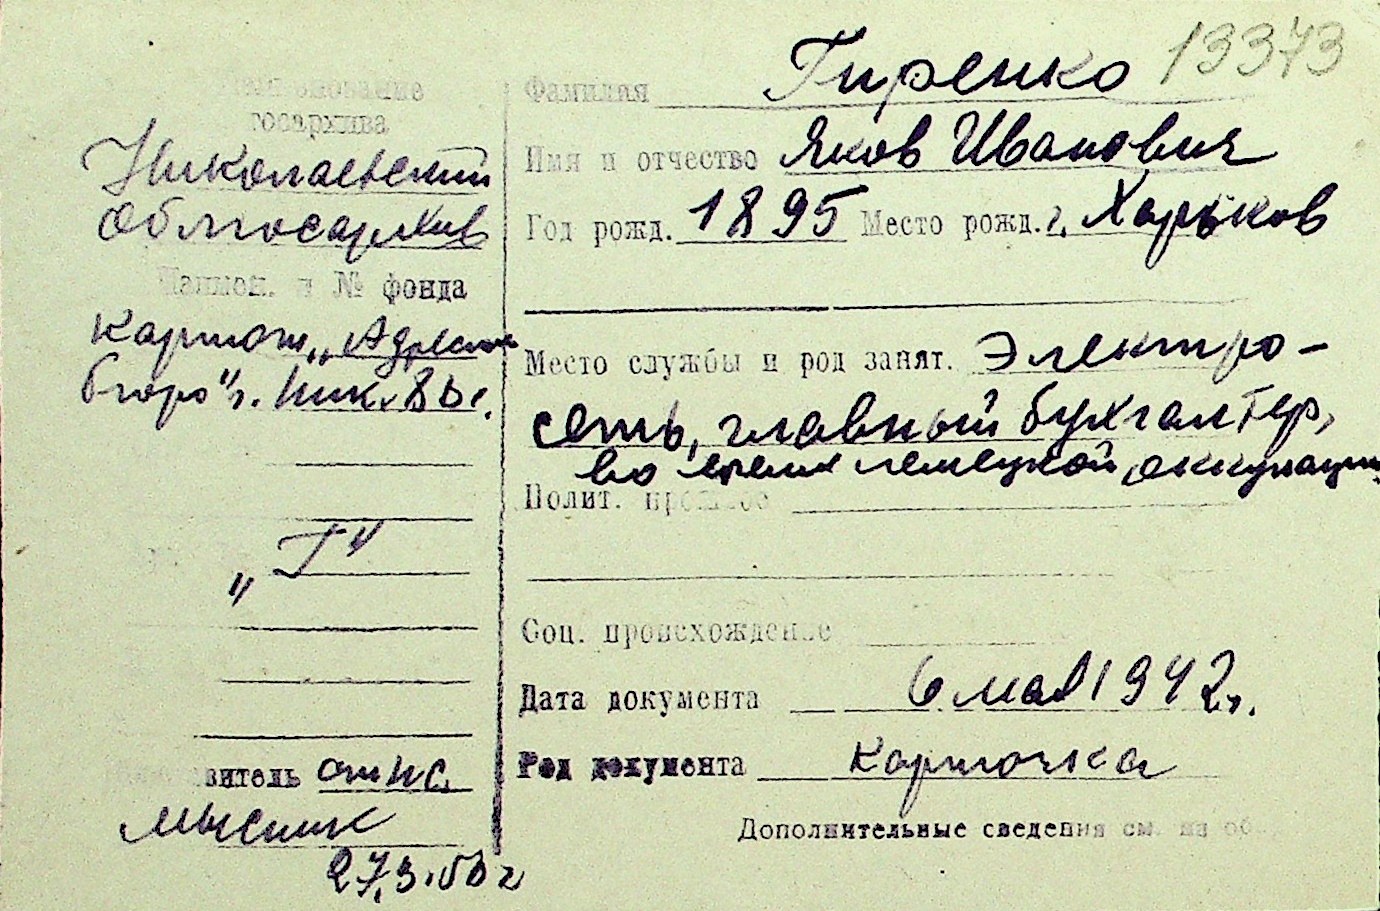 13373
Наименование
госархива
Николаевский
Облгосархив
Наимен. и № фонда
Картот. „Адресное
бюро" г. Ник.
„Г"
витель
Мысник
27,3.50 г
Фамилия Гиренко
Имя и отчество Яков Иванович
Год рожд. 1895 Место рожд. г. Харьков
Место службы и род занят. Электро-
сеть, главный бухгалтер,
во время немецкой оккупации.
Полит. прошлое
Соц. происхождение
Дата документа 6 мая 1942 г.
Род документа Карточка
Дополнительные сведения см. на об.